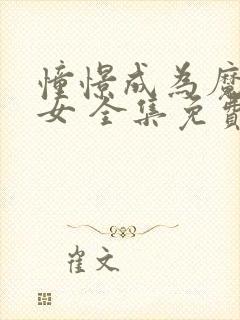 憧憬成為魔
女 全集免費
崔文